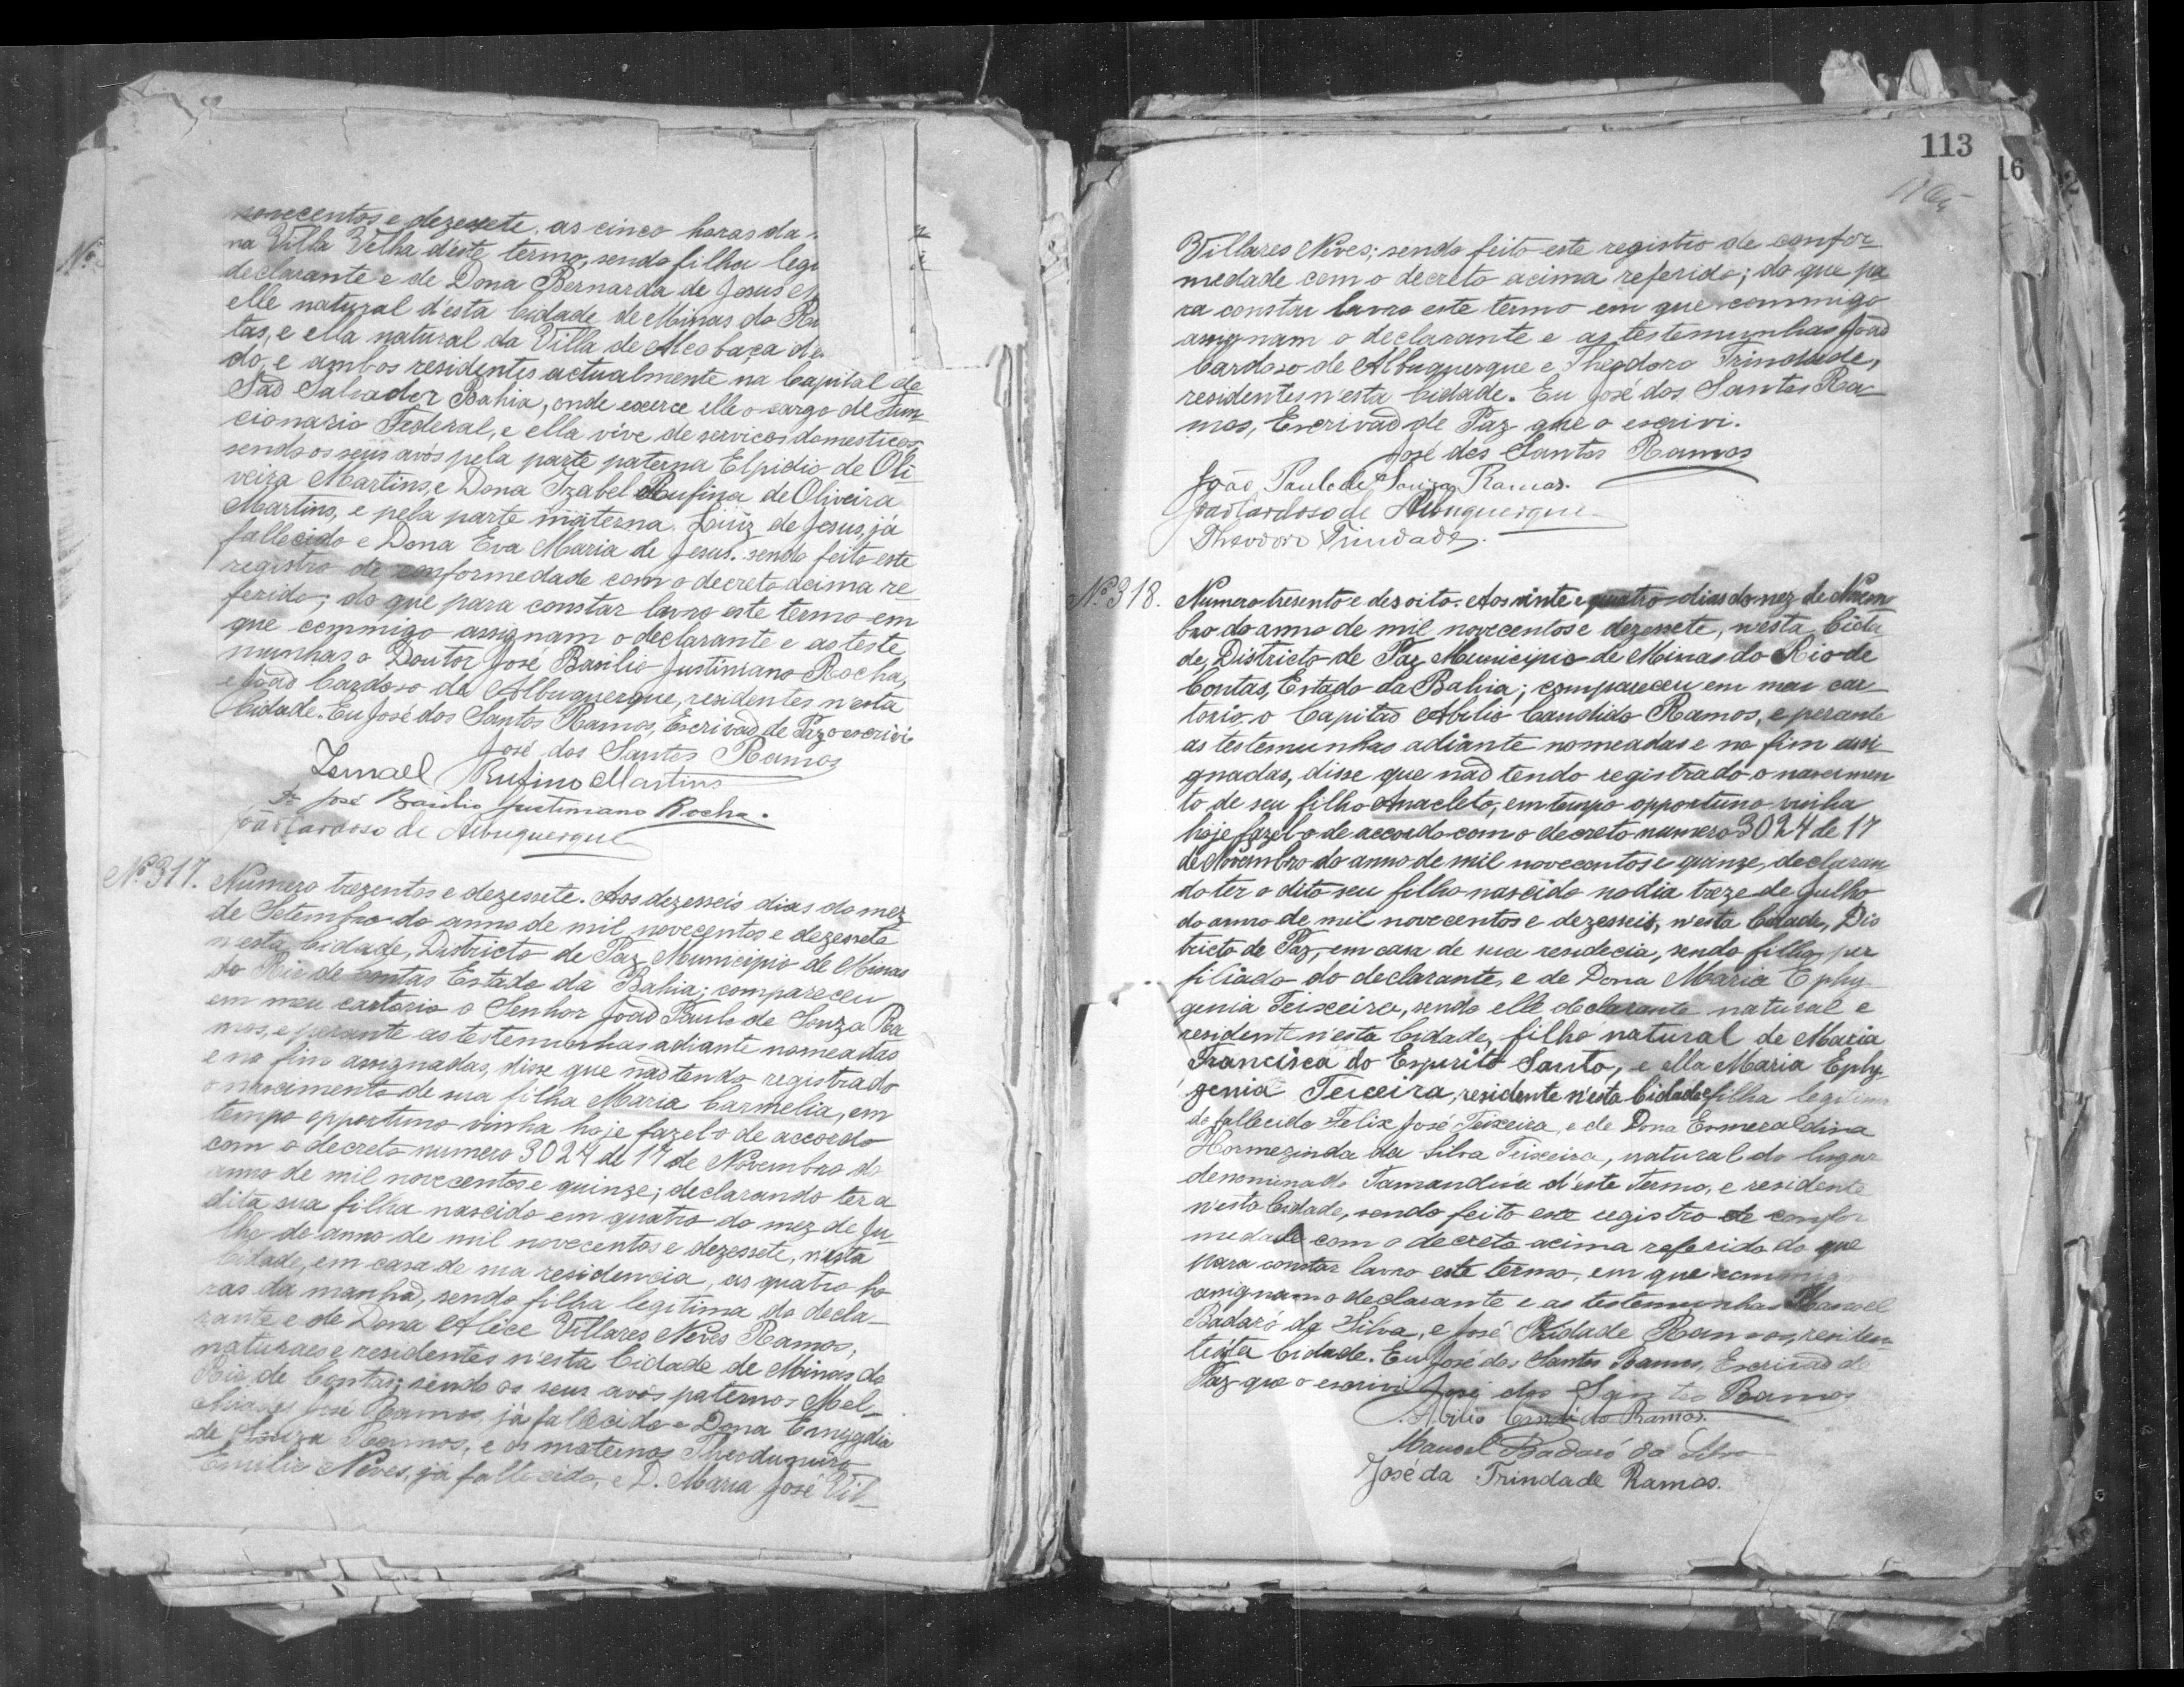 novecentos e dezessete, as cinco horas da
na Villa Velha d'este termo, sendo filha legi
declarante e de Dona Bernarda de Jesus e
elle natural d'esta Cidade de Minas do Ri
tas, e ella natural da Villa de Alcobaça d
do, e ambos residentes actualmente na Capital de
São Salvador Bahia, onde exerce elle o cargo de Fun-
cionario Federal, e ella vive de serviços domesticos,
sendo os seus avós pela parte paterna Elpidio de Oli-
veira Martins, e Dona Izabel Rufina de Oliveira
Martins, e pela parte materna Luiz de Jesus, já
fallecido e Dona Eva Maria de Jesus. sendo feito este
registro de conformedade com o decreto acima re
ferido; do que para constar lavro este termo em
que commigo assignam o declarante e as teste
munhas o Doutor José Basilio Justiniano Rocha,
e João Cardoso de Albuquerque, residentes n'esta
Cidade. Eu José dos Santos Ramos, Escrivaõ de Paz o escrivi
José dos Santos Ramos
Ismael Rufino Martins
Dr José Basilio Justiniano Rocha.
João Cardoso de Albuquerque
Nº 317. Numero trezentos e dezessete. Aos dezesseis dias do mez
de Setembro do anno de mil novecentos e dezessete
n'esta Cidade, Districto de Paz Municipio de Minas
do Rio de Contas Estado da Bahia; compareceu
em meu cartorio o Senhor João Paulo de Souza Ra
mos, e perante as testemunhas adiante nomeadas
e no fim assignadas, disse que naõ tendo registrado
o nascimento de sua filha Maria Carmelia, em
tempo opportuno vinha hoje fazel-o de accordo
com o decreto numero 3024 de 17 de Novembro do
anno de mil novecentos e quinze; declarando ter a
dita sua filha nascido em quatro do mez de Ju-
lho do anno de mil novecentos e dezessete, n'esta
Cidade, em casa de sua residencia, as quatro ho
ras da manhã, sendo filha legitima do decla-
rante e de Dona Alice Villares Neves Ramos,
naturaes e residentes n'esta Cidade de Minas do
Rio de Contas; sendo os seus avós paternos Mel-
chiades José Ramos, já fallecido e Dona Emygdia
de Souza Ramos, e os maternos Theodumiro
Emilio Neves, já fallecido, e D. Maria José Vil-
113
16
Villares Neves; sendo feito este registro de confor
medade com o decreto acima referido; do que pa
ra constar lavro este termo em que commigo
assignam o declarante e as testemunhas João
Cardoso de Albuquerque e Theodoro Trindade,
residentes n'esta Cidade. Eu José dos Santos Ra-
mos, Escrivaõ de Paz que o escrivi.
José dos Santos Ramos
João Paulo de Souza Ramos.
João Cardoso de Albuquerque
Theodoro Trindade.
Nº 318. Numero tresento e desoito. Aos vinte e quatro dias do mez de Novem
bro do anno de mil novecentos e dezessete, n'esta Cida
de, Districto de Paz Municipio de Minas do Rio de
Contas, Estado da Bahia; compareceu em meu car
torio, o Capitaõ Abilio Candido Ramos, e perante
as testemunhas adiante nomeadas e no fim assi
gnadas, disse que naõ tendo registrado o nascimen
to de seu filho Anacleto, em tempo opportuno vinha
hoje fazel-o de accordo com o decreto numero 3024 de 17
de Novembro do anno de mil novecentos e quinze, declaran
do ter o dito seu filho nascido no dia treze de Julho
do anno de mil novecentos e dezesseis, n'esta Cidade, Dis
tricto de Paz, em casa de sua residecia, sendo filho per
filiado do declarante, e de Dona Maria Ephy
genia Teixeira, sendo elle declarante natural e
residente n'esta Cidade, filho natural de Maria
Francisca do Espirito Santo, e ella Maria Ephy-
genia Teixeira, residente n'esta Cidade filha legitima
do fallecido Felix José Teixeira, e de Dona Esmeraldina
Hormezinda da Silva Teixeira, natural do lugar
denominado Tamanduá d'este Termo, e residente
n'esta Cidade, sendo feito este registro de confor
medade com o decreto acima referido do que
para constar lavro este termo, em que commigo
assignam o declarante e as testemunhas Manoel
Badaró da Silva, e José Trindade Ramos, residen-
te n'esta Cidade. Eu José dos Santos Ramos, Escrivaõ de
Paz que o escrivi José dos Santos Ramos
Abilio Candido Ramos.
Manoel Badaró da Silva
José da Trindade Ramos.